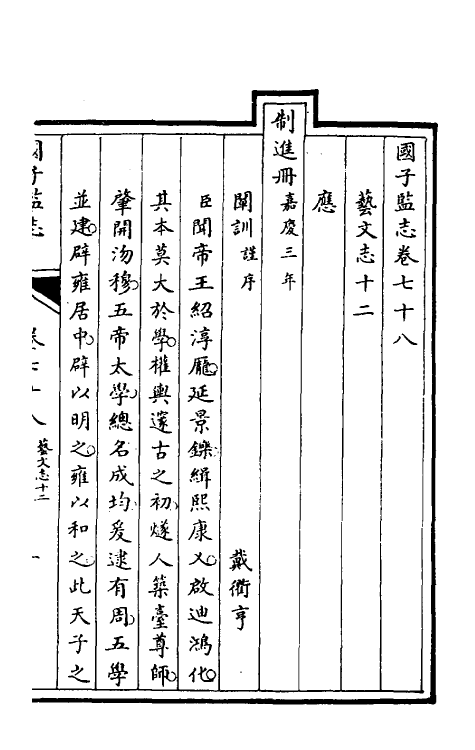 國子監志卷七十八
藝文志十二
應
制進冊嘉慶三年
闡訓謹序 戴衢亨
臣聞帝王紹淳厖延景鑠緝熙康乂啟迪鴻化
其本莫大於學權輿邃古之初燧人築臺尊師
肇開沕穆五帝太學總名成均爰逮有周五學
並建辟雍居中辟以明之雍以和之此天子之
國子監志 卷七十八 藝文志十二 一